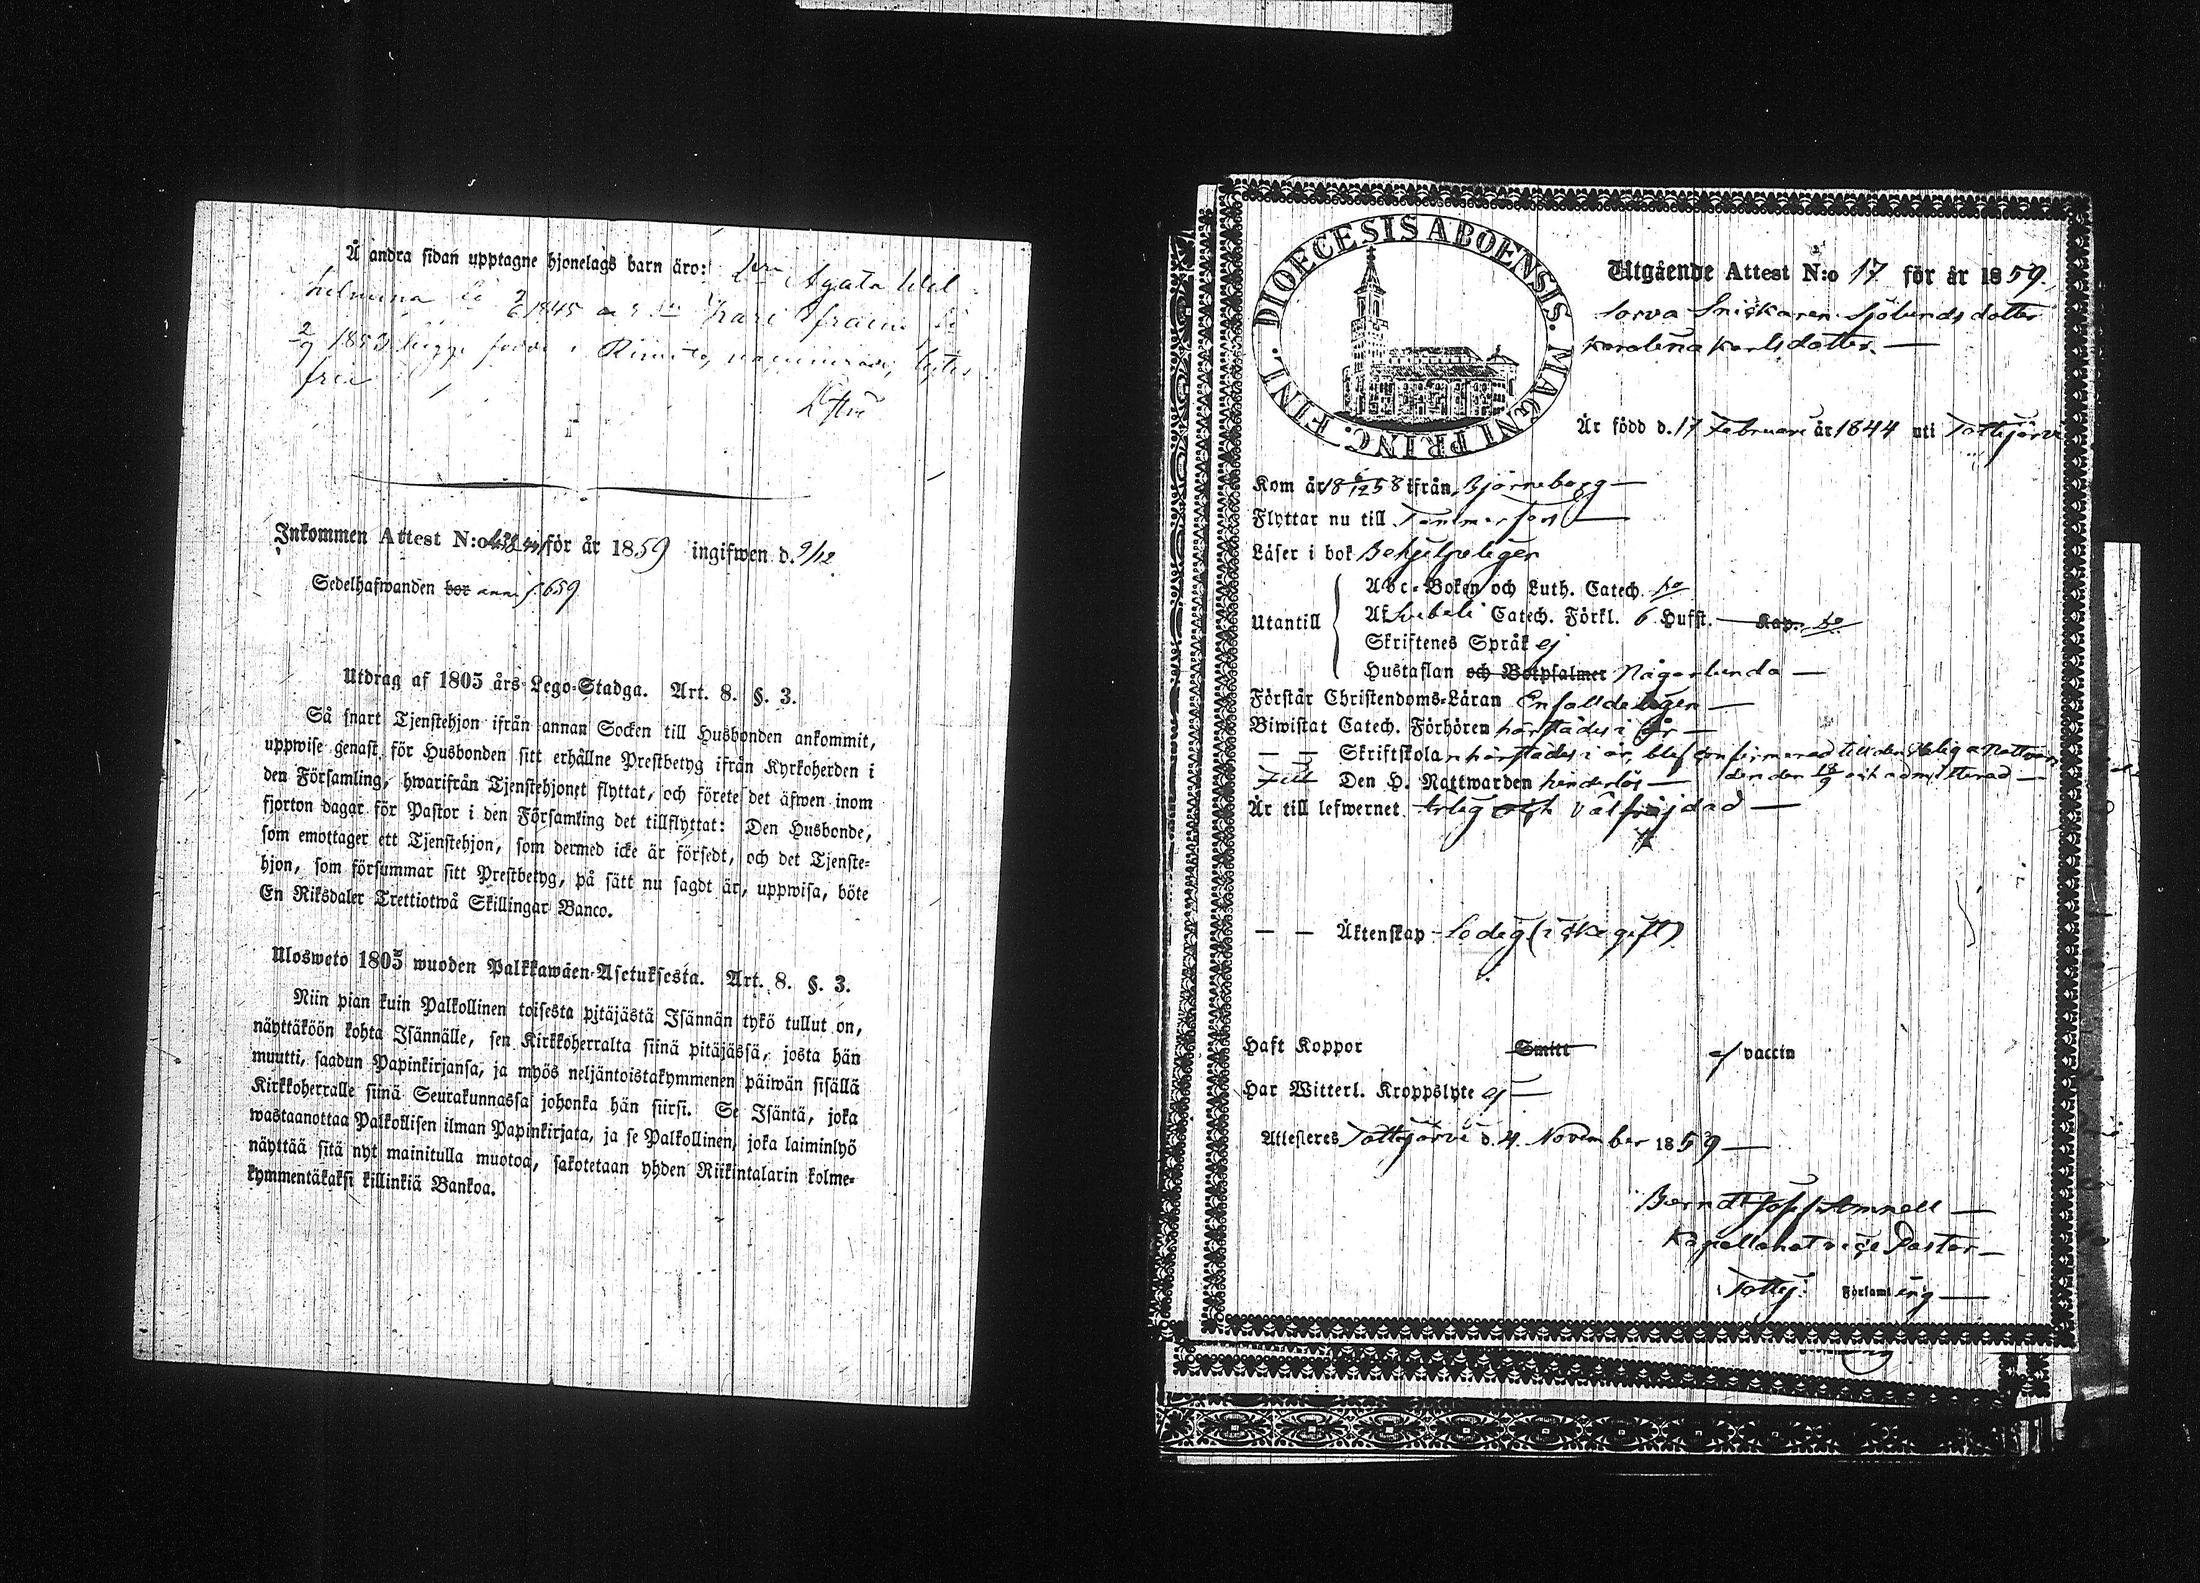 Å andra sidan upptagne hjonelags barn äro: Agata Wil
helmina
1845 Karl
1853 ligga i Rimito,
fria
Inkommen Attest N:o för år 1859 ingifwen d. 9/12
Sedelhafwanden bor ann. f. 659
Utdrag af 1805 års Lego-Stadga. Art. 8. §. 3.
Så snart Tjenstehjon ifrån annan Socken till Husbonden ankommit,
uppwise genast för Husbonden sitt erhållne Prestbetyg ifrån Kyrkoherden i
den Församling, hwarifrån Tjenstehjonet flyttat, och förete det äfwen inom
fjorton dagar för Pastor i den Församling det tillflyttat: Den Husbonde,
som emottager ett Tjenstehjon, som dermed icke är försedt, och det Tjenste-
hjon, som försummar sitt Prestbetyg, på sätt nu sagdt är, uppwisa, böte
En Riksdaler Trettiotwå Skillingar Banco.
Ulosweto 1805 wuoden Palkkawäen-Asetuksesta. Art. 8. §. 3.
Niin pian kuin Palkollinen toisesta pitäjästä Isännän tykö tullut on,
näyttäköön kohta Isännälle, sen Kirkkoherralta siinä pitäjässä, josta hän
muutti, saadun Papinkirjansa, ja myös neljäntoistakymmenen päiwän sisällä
Kirkkoherralle siinä Seurakunnassa johonka hän siirsi. Se Isäntä, joka
wastaanottaa Palkollisen ilman Papinkirjata, ja se Palkollinen, joka laiminlyö
näyttää sitä nyt mainitulla muotoa, sakotetaan yhden Riikintalarin kolme-
kymmentäkaksi killinkiä Bankoa.
DIOECESIS ABOENSIS. MAGNI PRINC. FINL.
Utgående Attest N:o 17 för år 1859.
Sorva Snickaren Sjölunds dotter
Karolina Karlsdotter. —
Är född d. 17 Februari år 1844 uti Tottijärvi
Kom år 18 6/12 58 ifrån Björneborg —
Flyttar nu till Tammerfors —
Läser i bok Behjelpeligen
Abc-Boken och Luth. Catech. do
Utantill Af Svebeli Catech. Förkl. 6 Hufst. — Kap. do
Skriftenes Språk ej
Hustaflan och Botpsalmer Någorlunda —
Förstår Christendoms-Läran Enfaldeligen —
Biwistat Catech. Förhören härstädes i år —
— — Skriftskolan härstädes i år, blef confirmerad till den Heliga Nattvar
Till Den H. Nattwarden hinderlös — den den och admitterad —
Är till lefwernet Ärlig och välfräjdad —
— — Äktenskap — Ledig (icke gift)
Haft Koppor Smitt af vaccin
Har Witterl. Kroppslyte ej —
Attesteres Tottijärvi d. 4 November 1859 —
Berndt
Kapellan et vice Pastor —
Tottij. Församling —